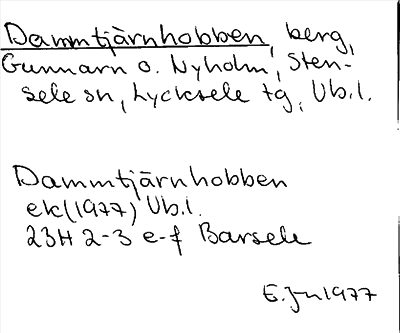 Dammtjärnhobben, berg,
Gunnarn o. Nyholm, Sten-
sele sn, Lycksele tg, Vb.l.
Dammtjärnhobben
ek (1977) Vb.l.
23H 2-3 e-f Barsele
E. Jn 1977